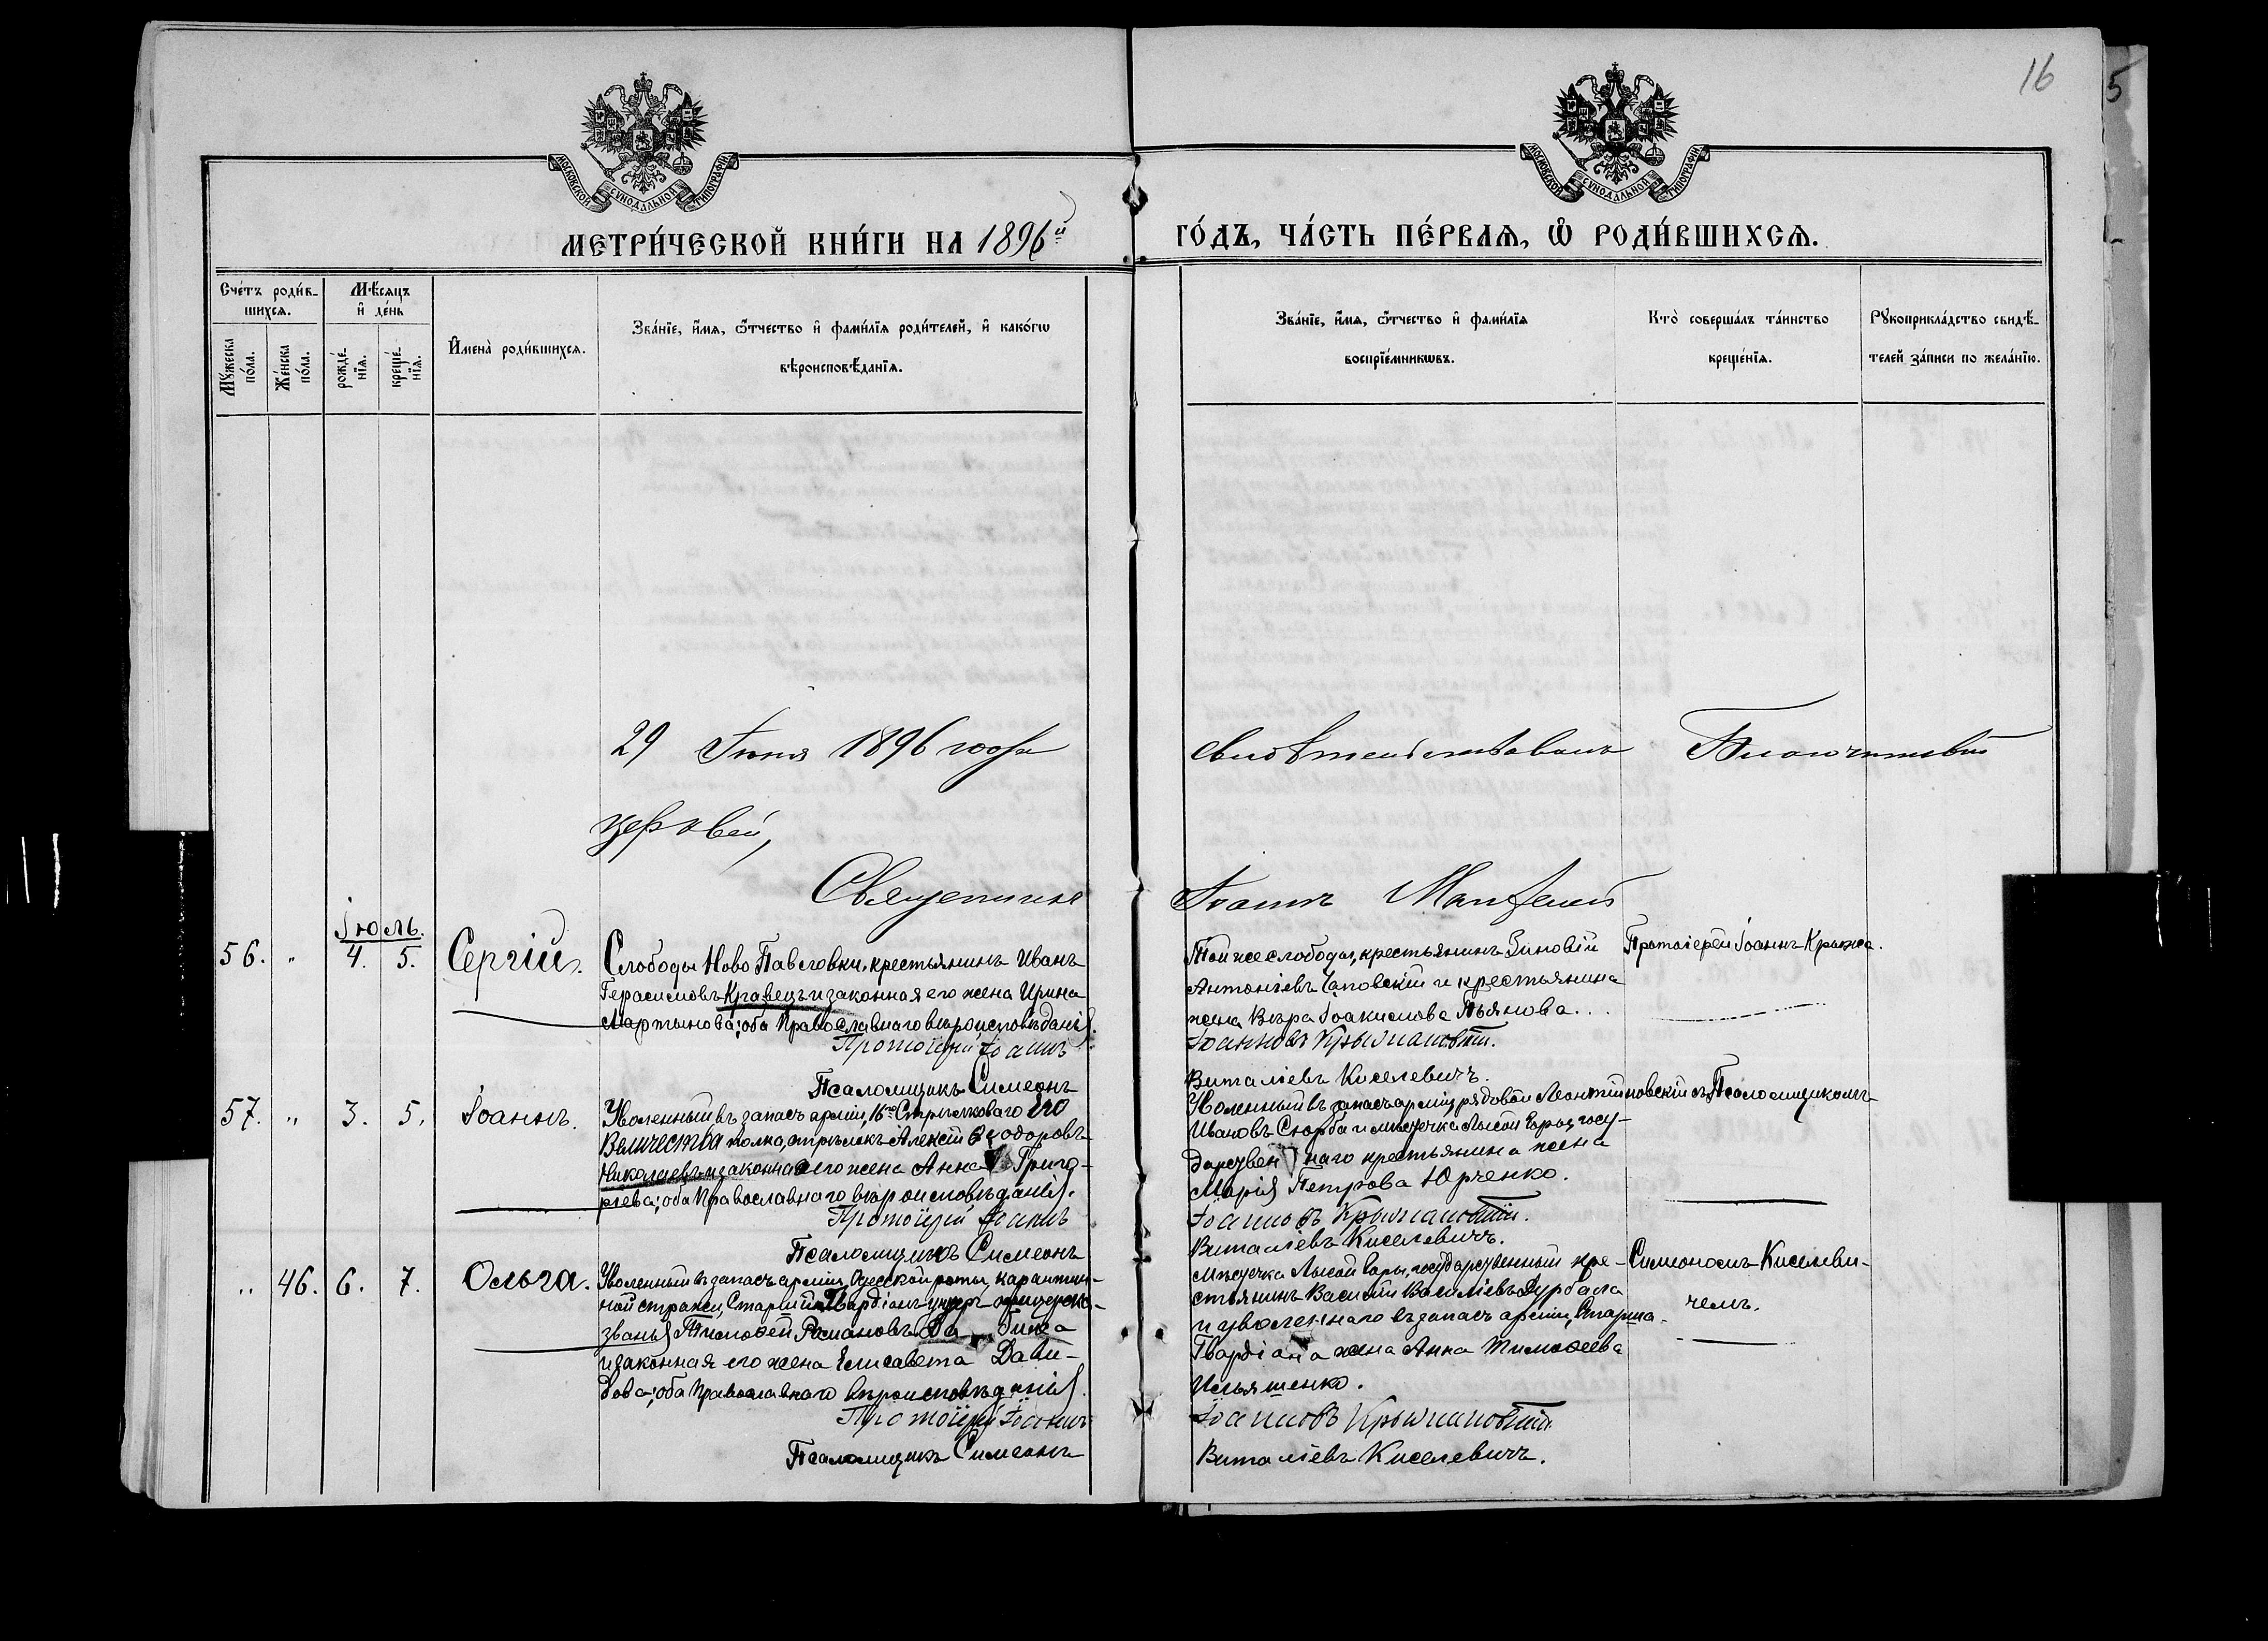 16
5
МОСКОВСКОЙ СѴНОДАЛЬНОЙ ТИПОГРАФІИ
МОСКОВСКОЙ СѴНОДАЛЬНОЙ ТИПОГРАФІИ
МЕТРИ́ЧЕСКОЙ КНИ́ГИ НА 1896й
ГО́ДЪ, ЧА́СТЬ ПЕ́РВАѦ, Ѡ РОДИ́ВШИХСѦ.
Сче́тъ роди́в-
шихсѧ.
Му́жеска по́ла.
Же́нска по́ла.
Мѣ́сѧцъ и де́нь
рожде́-
нїѧ.
креще́-
нїѧ.
Имена̀ роди́вшихсѧ.
Зва́нїе, и́мѧ, ѻ́тчество и фами́лїѧ роди́телей, и како́гѡ
вѣроисповѣ́данїѧ.
Зва́нїе, и́мѧ, ѻ́тчество и фами́лїѧ
воспрїе́мникѡвъ.
Кто̀ соверша́лъ та́инство
креще́нїѧ.
Рукоприкла́дство свидѣ́-
телей за́писи по жела́нїю.
29 Іюня 1896 года
свидѣтельствовалъ Благочинный
церквей,
Священникъ
Іоаннъ
Іюль.
56. " 4. 5. Сергій.
Слободы Ново Павловки, крестьянинъ Иванъ
Герасимовъ Кравецъ и законная его жена Ирина
Мартынова; оба Православнаго вѣроисповѣданія.
Протоіерей Іоаннъ
Псаломщикъ Симеонъ
Той же слободы, крестьянинъ Зиновій
Антоніевъ и крестьянина
жена Вѣра Іоакимова Пьянова...
Іоанновъ Крыжановскій.
Виталіевъ Киселевичъ.
Протоіерей Іоаннъ Крыжа
57. " 3. 5. Іоаннъ.
Уволенный въ запасъ арміи, 16го Стрѣлковаго Его
Величества полка, стрѣлокъ Алексій Ѳеодоровъ
Николаевъ и законная его жена Анна Григо-
рьева; оба Православнаго вѣроисповѣданія.
Протоіерей Іоаннъ
Псаломщикъ Симеонъ
Уволенный въ запасъ арміи, рядовой Леонтій
Ивановъ Сюрба и мѣстечка Лысой Горы, госу-
дарствен наго крестьянина жена
Марія Петрова Юрченко.
Іоанновъ Крыжановскій.
Виталіевъ Киселевичъ.
новскій съ Псаломщикомъ
" 46. 6. 7. Ольга.
Уволенный въ запасъ арміи, Одесской роты, карантин-
ной стражи, Старшій Гвардіанъ унтеръ-офицерска-
званія Тимоѳей Романовъ
и законная его жена Елисавета Дави-
дова; оба Православнаго вѣроисповѣданія.
Протоіерей Іоаннъ
Псаломщикъ Симеонъ
Мѣстечка Лысой Горы, государственный кре-
стьянинъ Василій Василіевъ Дурбала
и уволеннаго въ запасъ арміи, Старша-
Гвардіана жена Анна Тимоѳеева
Ильяшенко.
Іоанновъ Крыжановскій
Виталіевъ Киселевичъ.
Симеономъ Киселеви-
чемъ.